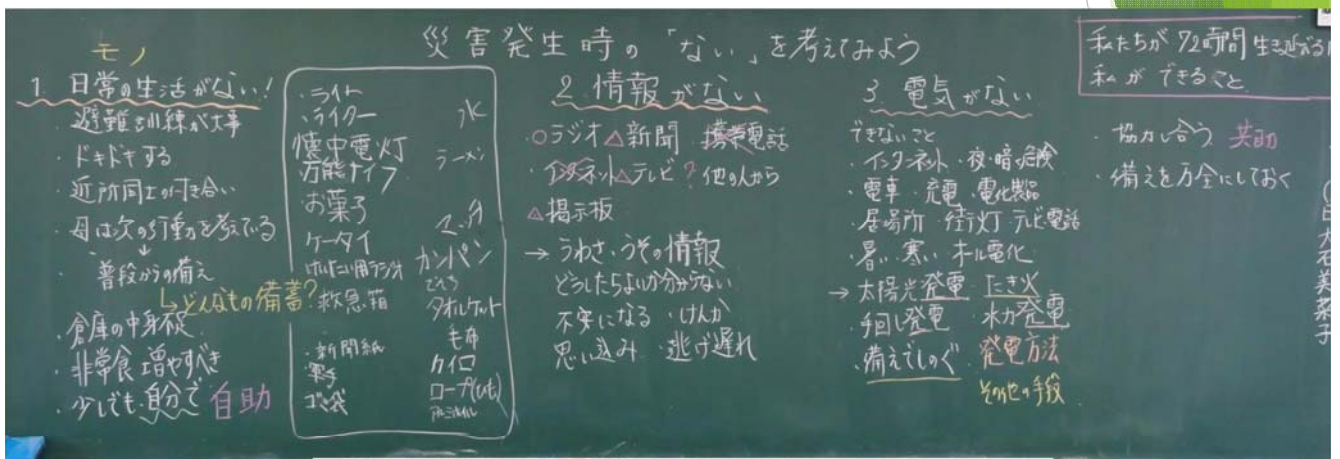 災害発生時の「ない」を考えてみよう
モノ
1. 日常の生活がない！
・避難訓練が大事
・ドキドキする
・近所同士の付き合い
・母は次の行動を考えている
↓
・普段からの備え
↳どんなもの備蓄？
・倉庫の中身不足
・非常食 増やすべき
・少しでも自分で 自助
・ライト
・ライター
懐中電灯
万能ナイフ
お菓子
ケータイ
けいたい用ラジオ
救急箱
・新聞紙
軍手
ゴミ袋
水
ラーメン
マッチ
カンパン
でんち
タオルケット
毛布
カイロ
ロープ(ひも)
アルミホイル
2. 情報がない
・○ラジオ △新聞 携帯電話
・インターネット △テレビ ？他の人から
△掲示板
→ うわさ・うその情報
どうしたらよいか分からない
不安になる ・けんか
思い込み ・逃げ遅れ
3. 電気がない
できないこと
・インターネット ・夜・暗い危険
・電車 ・充電 ・電化製品
・居場所 ・街灯 ・テレビ電話
・暑い、寒い ・オール電化
→ 太陽光発電 たき火
・手回し発電 水力発電
・備えでしのぐ 発電方法
その他の手段
私たちが72時間生き延びる
私ができること
・協力し合う 共助
・備えを万全にしておく
大石美菜子